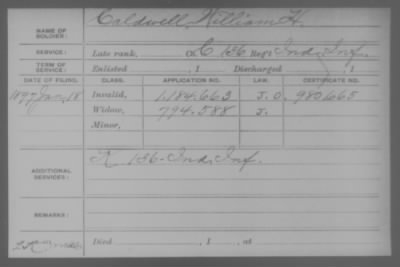 NAME OF SOLDIER: Caldwell, William H.
SERVICE: Late rank, Co. C, 136 Reg't Ind. Inf.
TERM OF SERVICE: Enlisted , 1 Discharged , 1
DATE OF FILING. CLASS. APPLICATION NO. LAW. CERTIFICATE NO.
1897 Jan. 18 Invalid, 1.184.663 J. O. 980.665
Widow, 794.588 J.
Minor,
ADDITIONAL SERVICES: K 136 Ind. Inf.
REMARKS:
Died , 1 , at